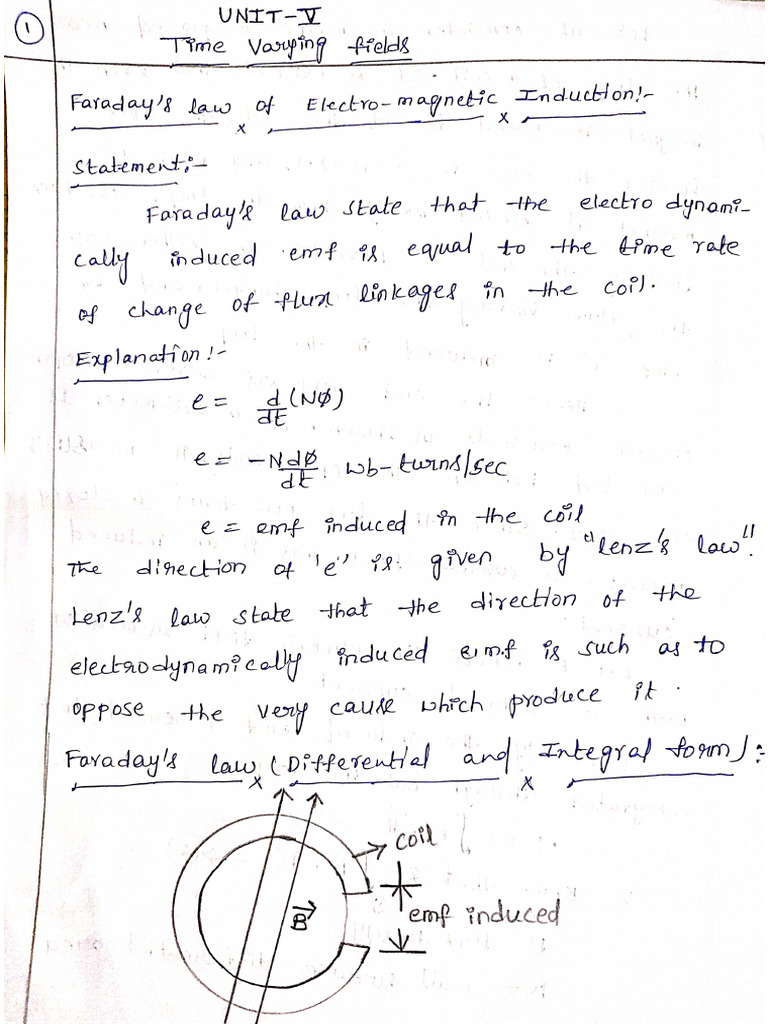 1
UNIT-V
Time Varying fields
Faraday's law of Electro-magnetic Induction:-
Statement:-
Faraday's law state that the electro dynami-
cally induced emf is equal to the time rate
of change of flux linkages in the coil.
Explanation:-
e = d/dt (NØ)
e = -N dØ/dt wb-turns/sec
e = emf induced in the coil
The direction of 'e' is given by "lenz's law".
Lenz's law state that the direction of the
electrodynamically induced emf is such as to
oppose the very cause which produce it.
Faraday's law (Differential and Integral form):-
coil
B→
emf induced